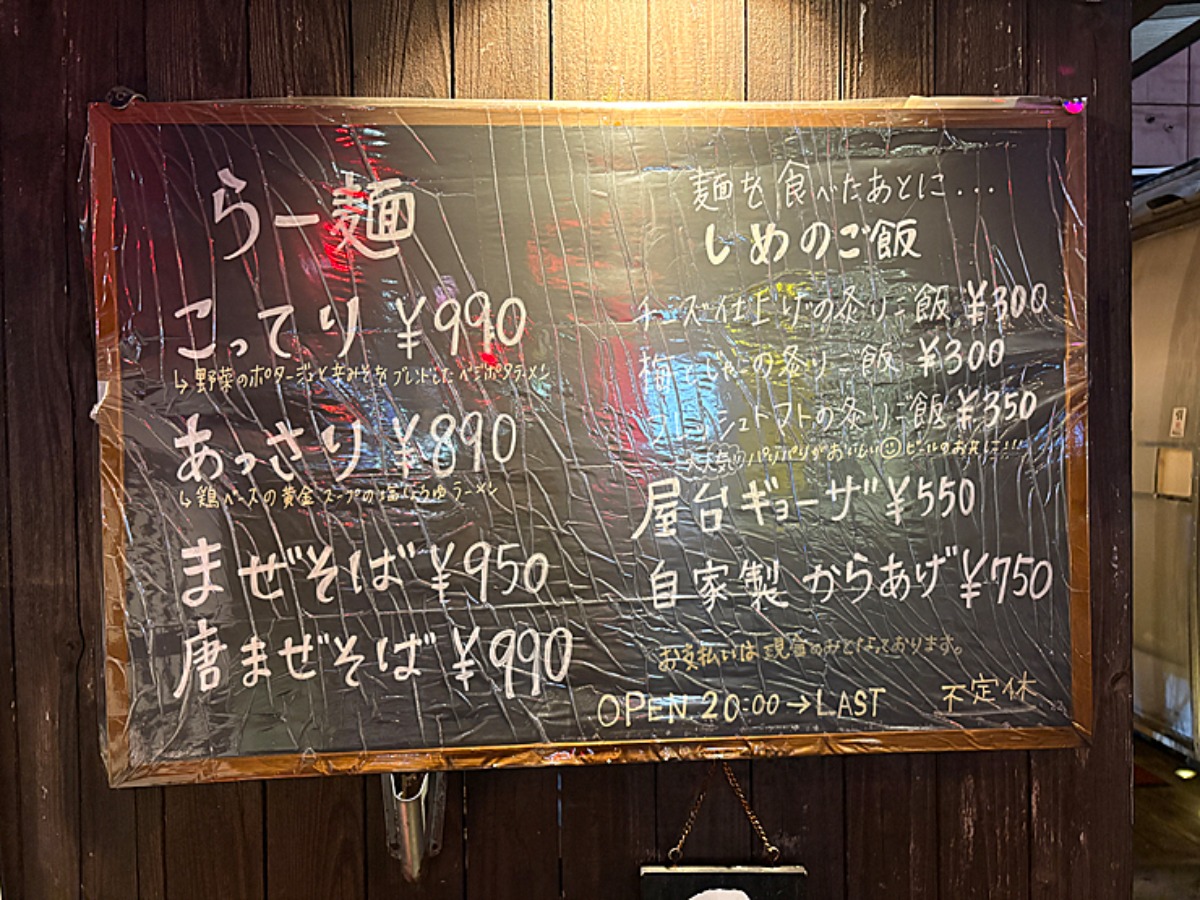 らー麺
こってり ¥990
↳野菜のポタージュと辛みそをブレンドしたベジポタラーメン
あっさり ¥890
↳鶏ベースの黄金スープの塩しょうゆラーメン
まぜそば ¥950
唐まぜそば ¥990
麺を食べたあとに...
しめのご飯
チーズ仕上げの炙りご飯 ¥300
梅とじゃこの炙りご飯 ¥300
トマトの炙りご飯 ¥350
パリパリがおいしい☺ビールのお共に!!!
屋台ギョーザ ¥550
自家製からあげ ¥750
お支払いは現金のみとなっております。
OPEN 20:00→LAST 不定休